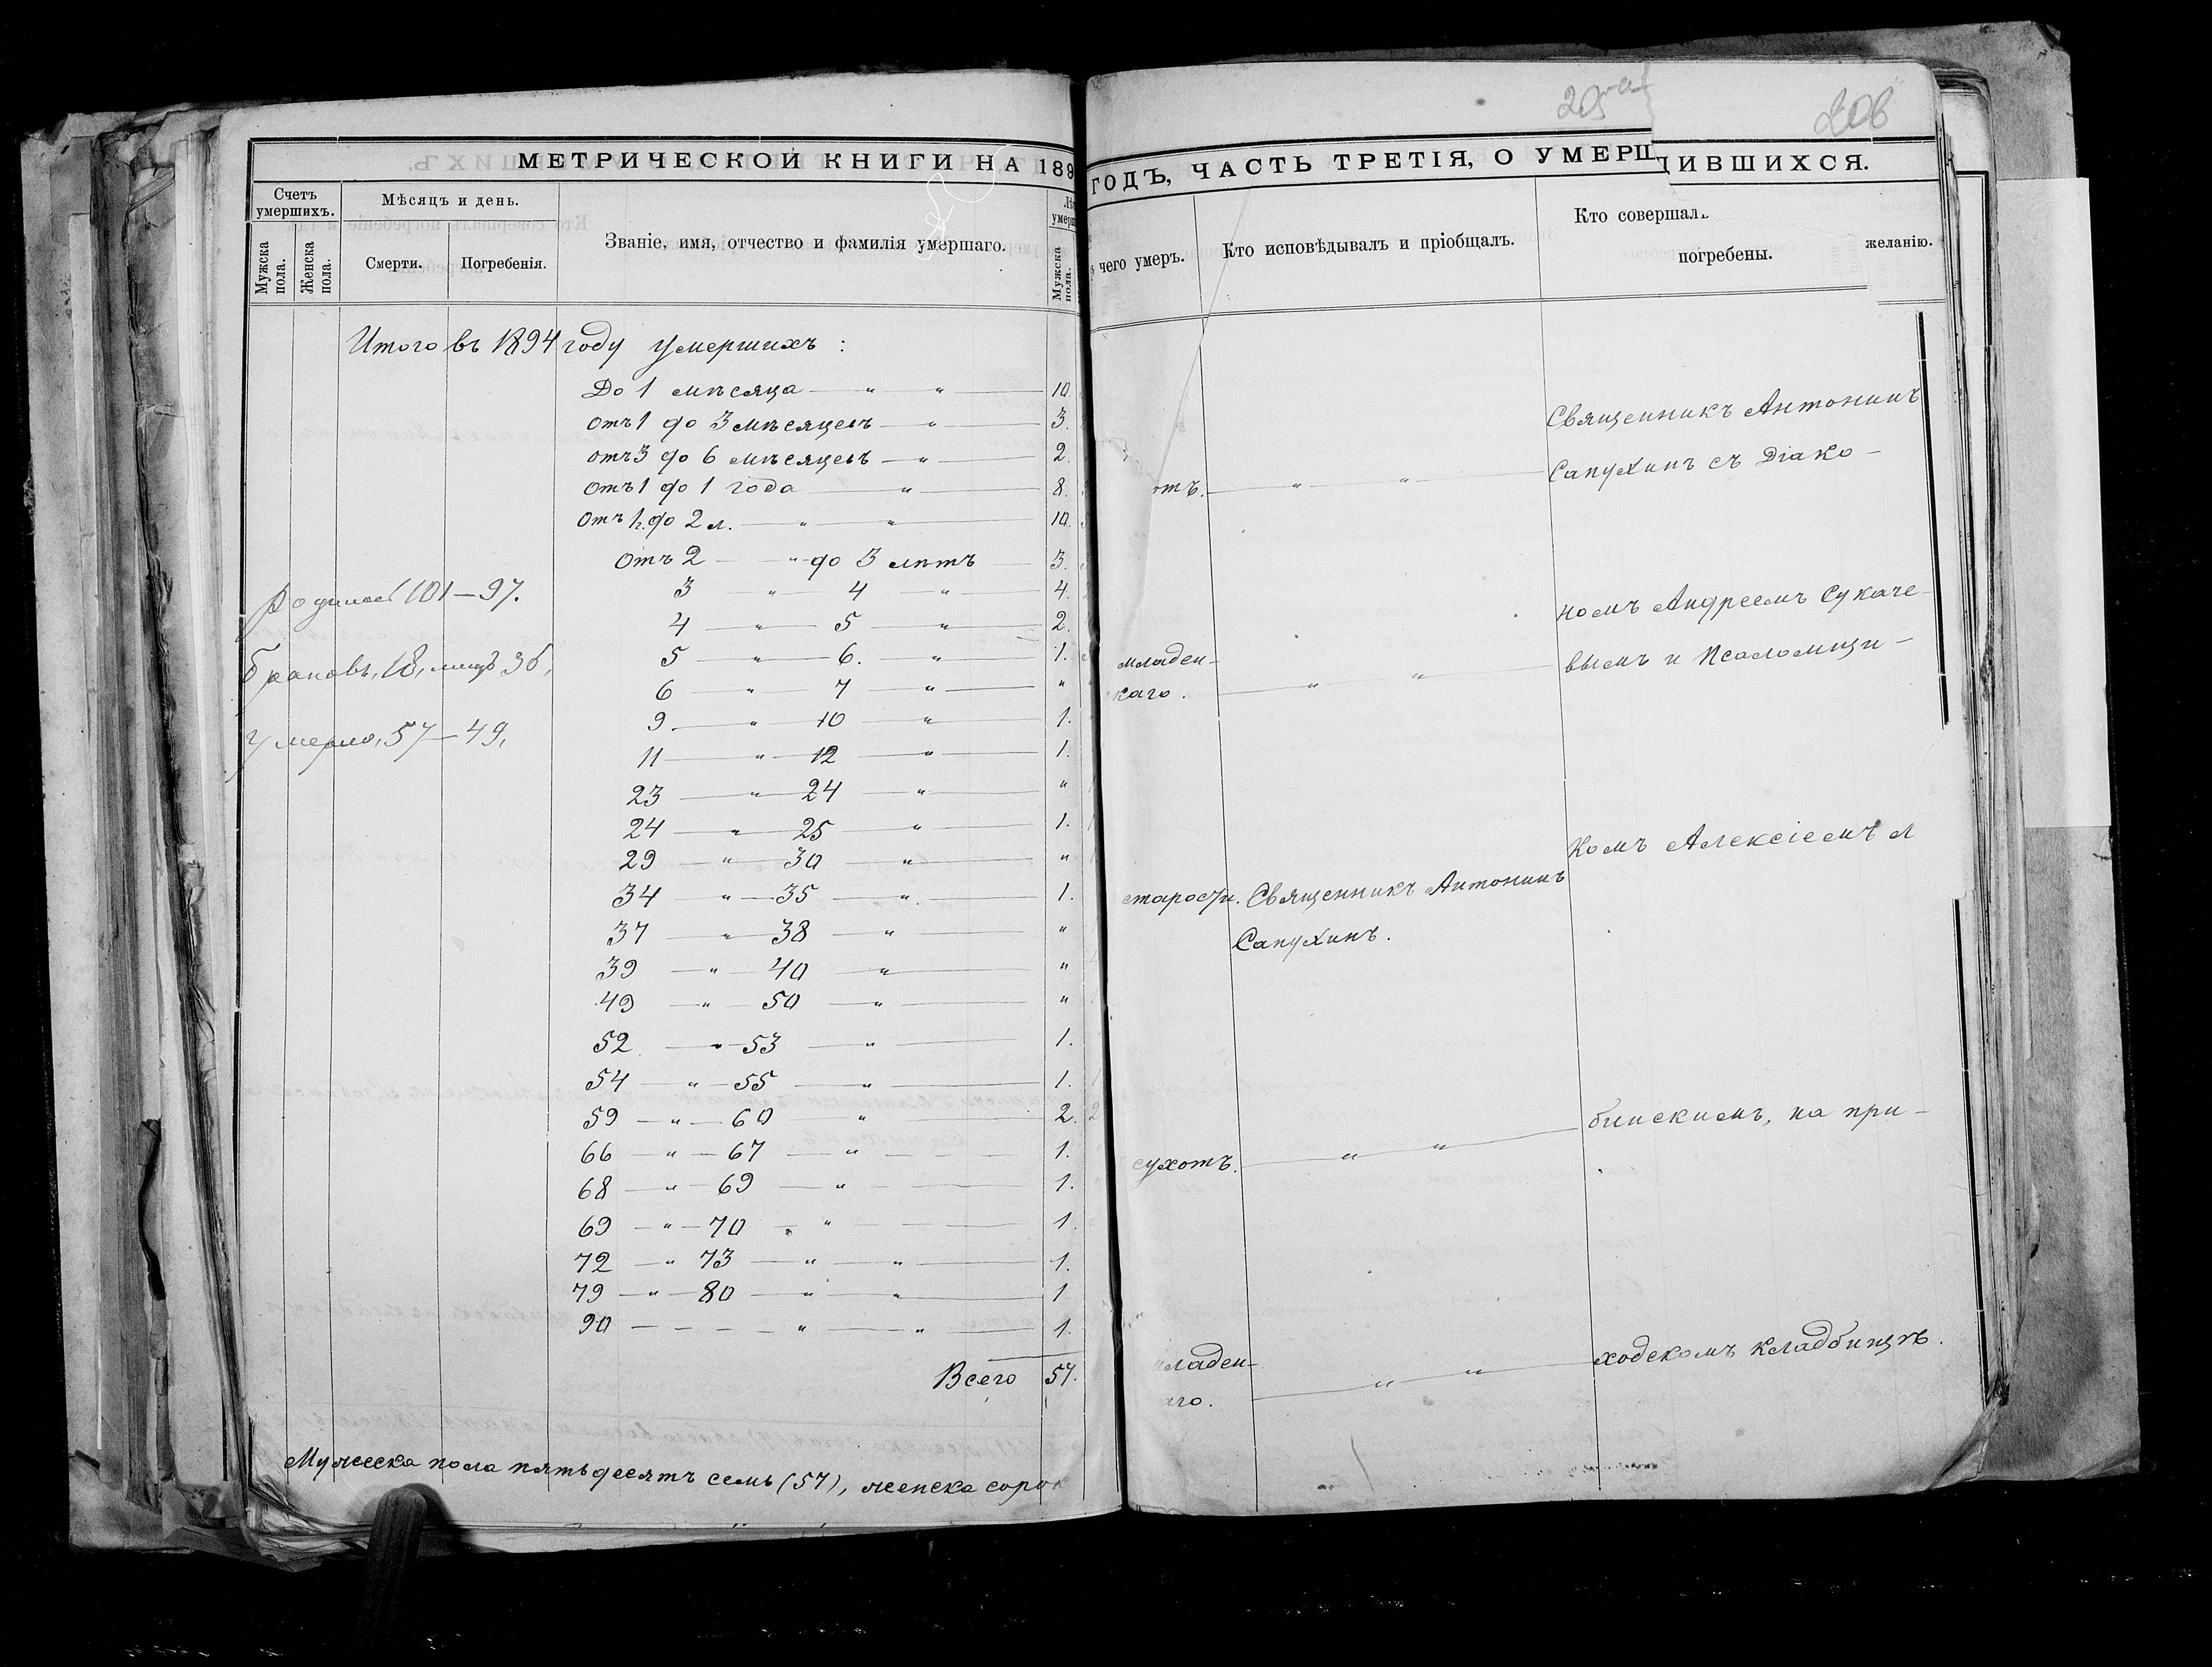 МЕТРИЧЕСКОЙ КНИГИ НА 189
Счетъ умершихъ.
Мужска пола.
Женска пола.
Мѣсяцъ и день.
Смерти.
Погребенія.
Званіе, имя, отчество и фамилія умершаго.
Мужска пола.
Итого въ 1894 году умершихъ :
До 1 мѣсяца — " — " — 10.
отъ 1 до 3 мѣсяцевъ — " — 3.
отъ 3 до 6 мѣсяцевъ — " — 2.
отъ 1 до 1 года — " — 8.
отъ 1 г. до 2 л. — " — " — 10.
отъ 2 — " — до 3 лѣтъ — 3.
3 " 4 " 4.
4 — " — 5 — " — 2.
5 — " — 6. " 1.
6 — " — 7 — " — "
9 — " — 10 " 1.
11 — " — 12 — " — 1.
23 — " — 24 — " — "
24 — " — 25 — " — 1.
29 — " — 30 — " — "
34 — " — 35 — " — 1.
37 — " — 38 — " — "
39 — " — 40 — " — "
49 — " — 50 — " — "
52 — " — 53 — " — 1.
54 — " — 55 — " — 1.
59 — " — 60 — " — 2.
66 — " — 67 — " — 1.
68 — " — 69 — " — 1.
69 — " — 70 — " — 1.
72 — " 73 — " — " — 1.
79 — " — 80 — " — " — 1
90 — — — — " — " — 1.
Всего 57.
101 — 97.
браковъ, 18, лицъ 36,
умерло, 57 — 49,
Мужеска пола пятьдесятъ семь (57), женска соро
206
ГОДЪ, ЧАСТЬ ТРЕТІЯ, О УМЕРШ
ДИВШИХСЯ.
чего умеръ.
Кто исповѣдывалъ и пріобщалъ.
Кто совершал
погребены.
желанію.
Священникъ Антонинъ
отъ. — " — " — Сапухинъ съ Діако -
номъ Андреемъ Сукаче-
младен-
каго. — " — " — вымъ и Псаломщи -
комъ Алексіемъ Л
старости. Священникъ Антонинъ
Сапухинъ.
сухотъ. — " — " — бинскимъ, на при -
младен-
аго. — " — " — ходскомъ кладбищѣ.